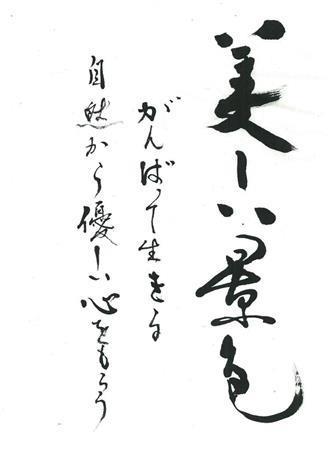 美しい景色
がんばって生きる
自然から優しい心をもらう